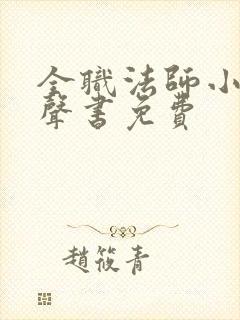 全職法師小
聲書免費
趙筱青